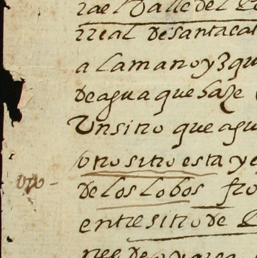 rael Valle del
rreal desantaca
alamano yz qu
deagua que haze
Un sitio que agu
otro sitio esta y e
de los lobos fro
entre sitio de